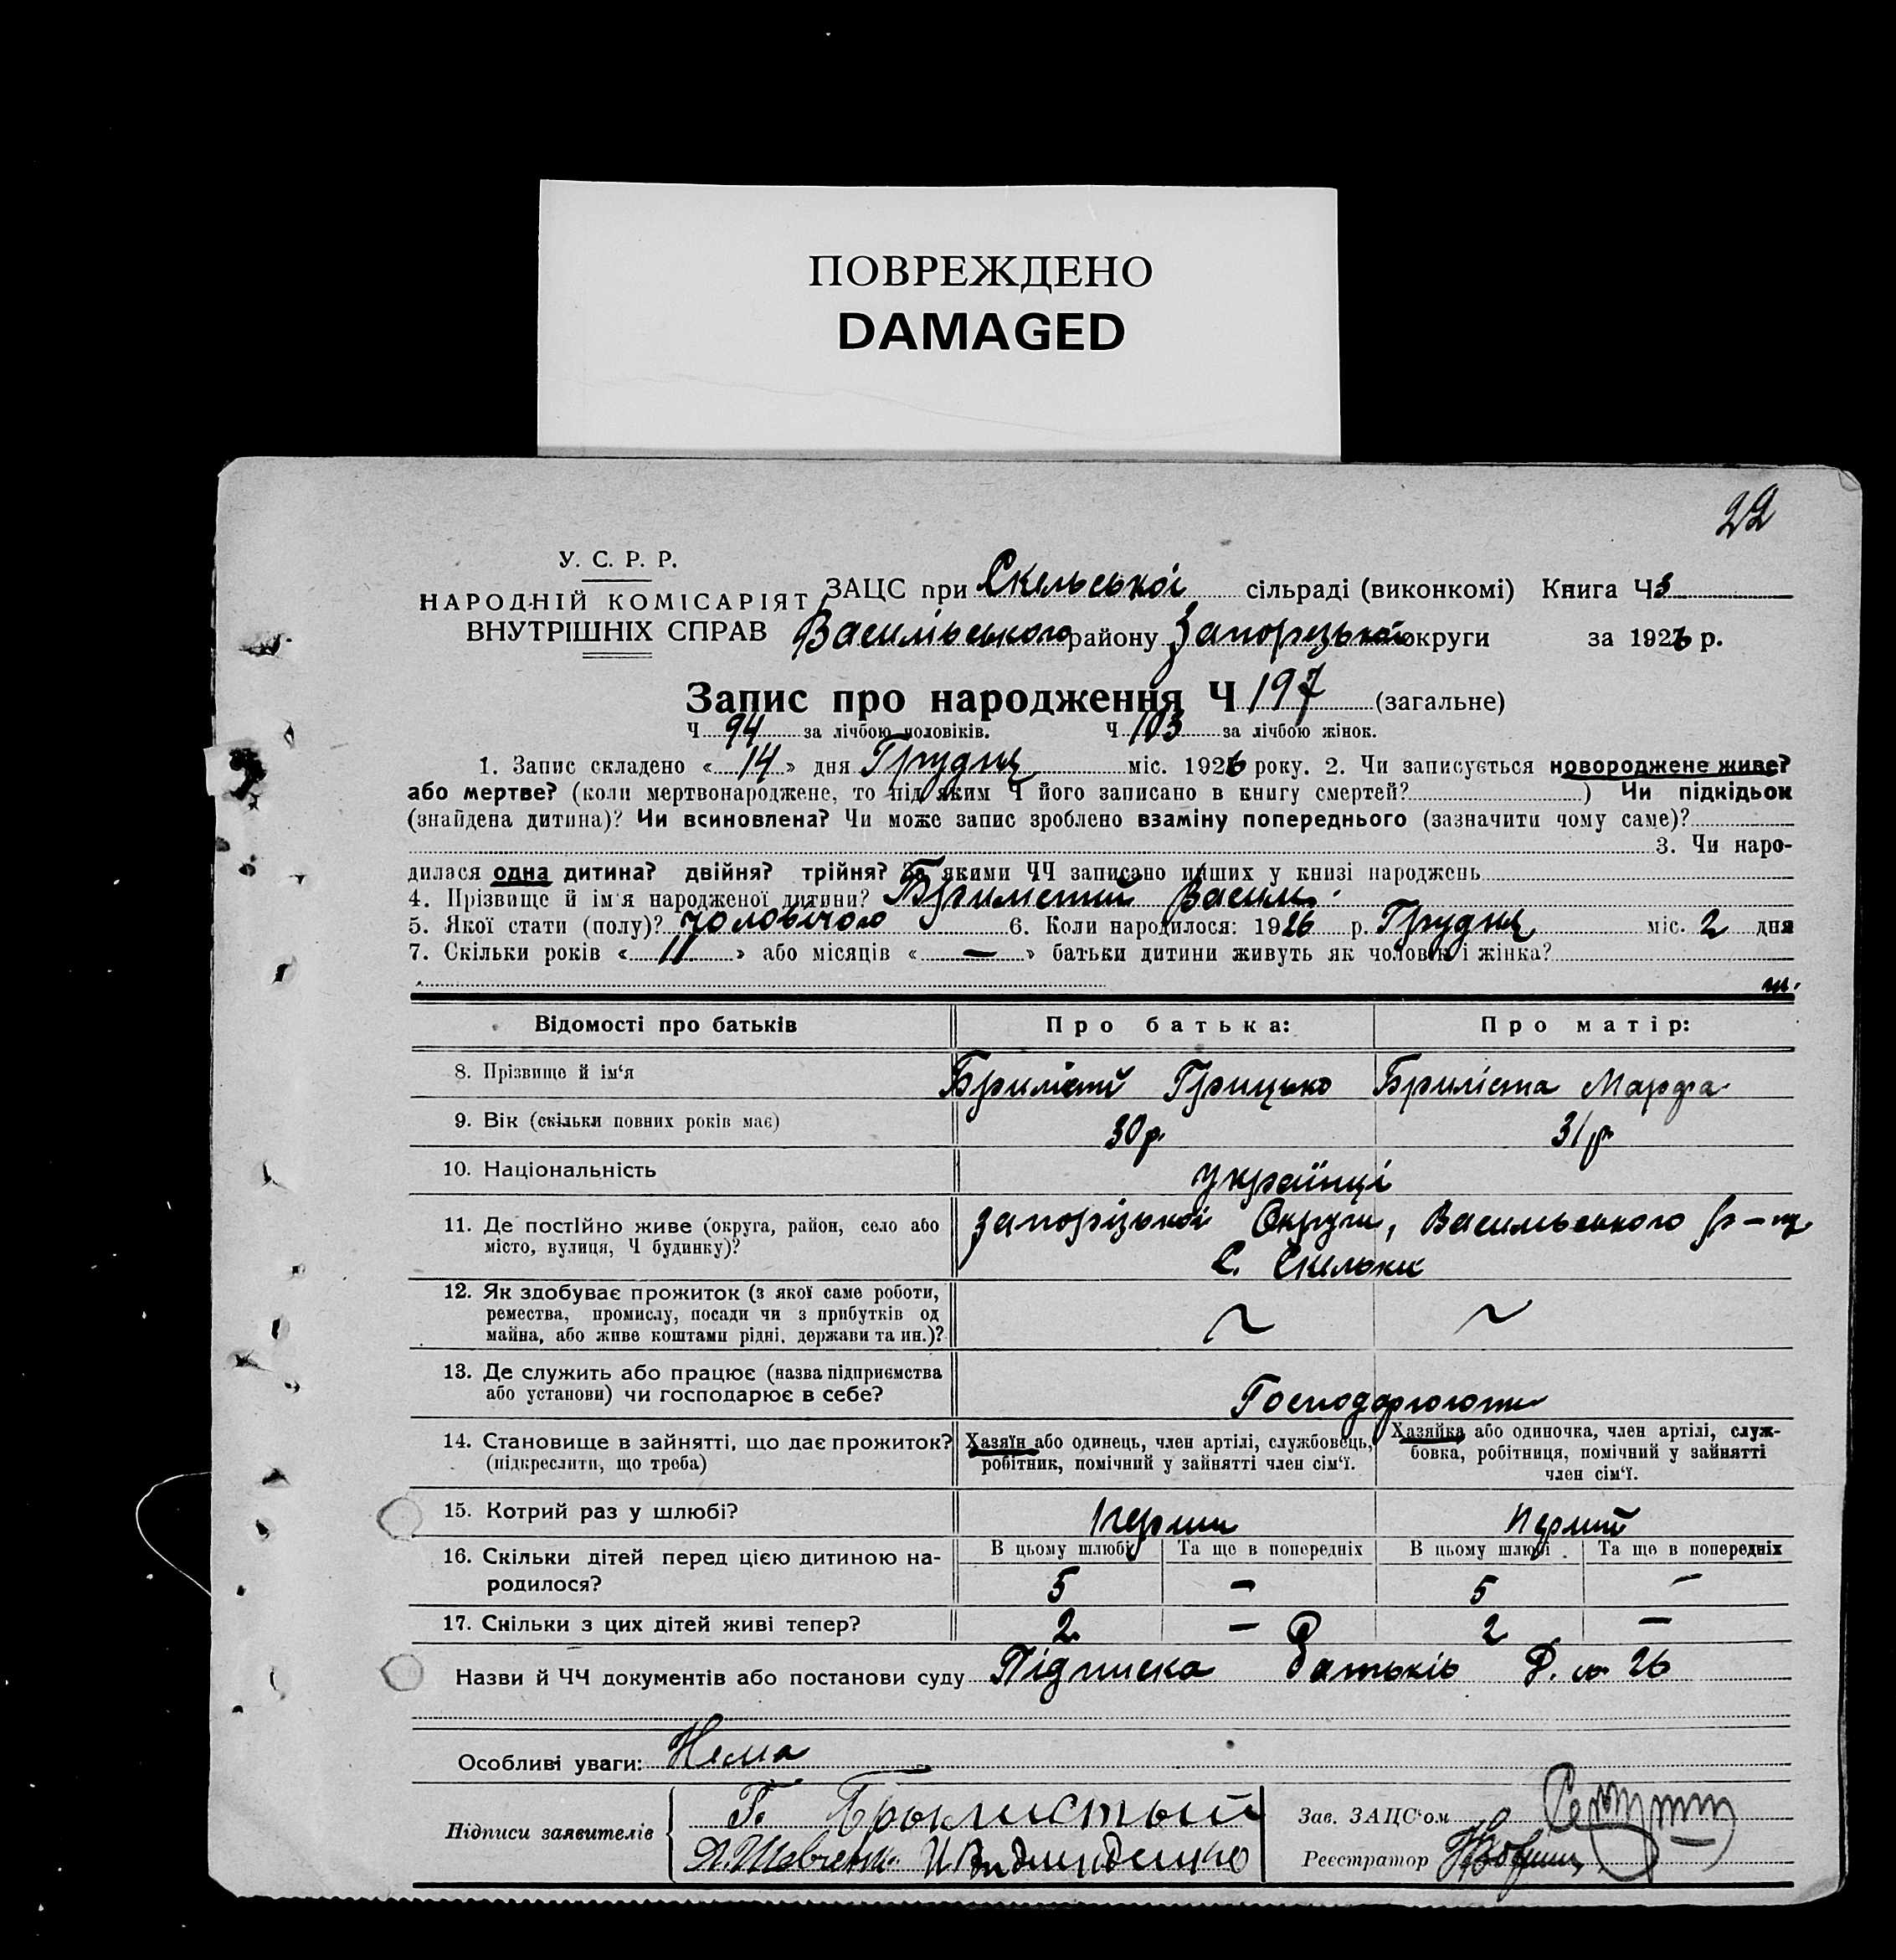 ПОВРЕЖДЕНО
DAMAGED
22
У. С. Р. Р.
НАРОДНІЙ КОМІСАРІЯТ
ВНУТРІШНІХ СПРАВ
ЗАЦС при Скельської сільраді (виконкомі) Книга Ч 3
Васильського району Запорізької округи за 1926 р.
Запис про народження Ч 197 (загальне)
Ч 94 за лічбою чоловіків. Ч 103 за лічбою жінок.
1. Запис складено « 14 » дня Грудня міс. 1926 року. 2. Чи записується новороджене живе?
або мертве? (коли мертвонароджене, то під яким Ч його записано в книгу смертей? ) Чи підкідьок
(знайдена дитина)? Чи всиновлена? Чи може запис зроблено взаміну попереднього (зазначити чому саме)?
3. Чи наро-
дилася одна дитина? двійня? трійня? За якими ЧЧ записано инших у книзі народжень
4. Прізвище й ім'я народженої дитини? Василь
5. Якої стати (полу)? чоловічої 6. Коли народилося: 1926 р. Грудня міс. 2 дня
7. Скільки років « 11 » або місяців « — » батьки дитини живуть як чоловік і жінка?
Відомості про батьків Про батька: Про матір:
8. Прізвище й ім'я Брилістий Грицько Бриліста Марфа
9. Вік (скільки повних років має) 30 р. 31 р.
10. Національність українці
11. Де постійно живе (округа, район, село або
місто, вулиця, Ч будинку)? Запорізької Округи, Васильського р-ну
С. Скельки
12. Як здобуває прожиток (з якої саме роботи,
ремества, промислу, посади чи з прибутків од
майна, або живе коштами рідні, держави та ин.)? ~ ~
13. Де служить або працює (назва підприємства
або установи) чи господарює в себе? Господарюють
14. Становище в зайнятті, що дає прожиток?
(підкреслити, що треба)
Хазяїн або одинець, член артілі, службовець,
робітник, помічний у зайнятті член сім'ї.
Хазяйка або одиночка, член артілі, служ-
бовка, робітниця, помічний у зайнятті
член сім'ї.
15. Котрий раз у шлюбі? перший перший
16. Скільки дітей перед цією дитиною на-
родилося?
В цьому шлюбі Та ще в попередніх В цьому шлюбі Та ще в попередніх
5 — 5 —
17. Скільки з цих дітей живі тепер? 2 — 2 —
Назви й ЧЧ документів або постанови суду Підписка батьків 26
Особливі уваги: Нема
Підписи заявителів Г.
Шевченко
Зав. ЗАЦС'ом
Реєстратор